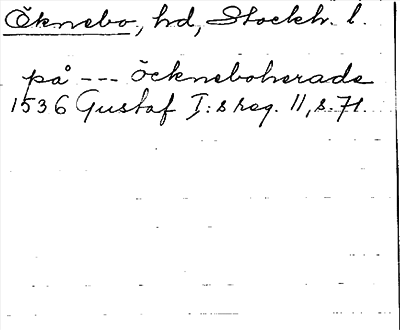 Öknebo, hd, Stockh. l.
på --- öckneboherade
1536 Gustaf I:s reg. 11, s. 71.